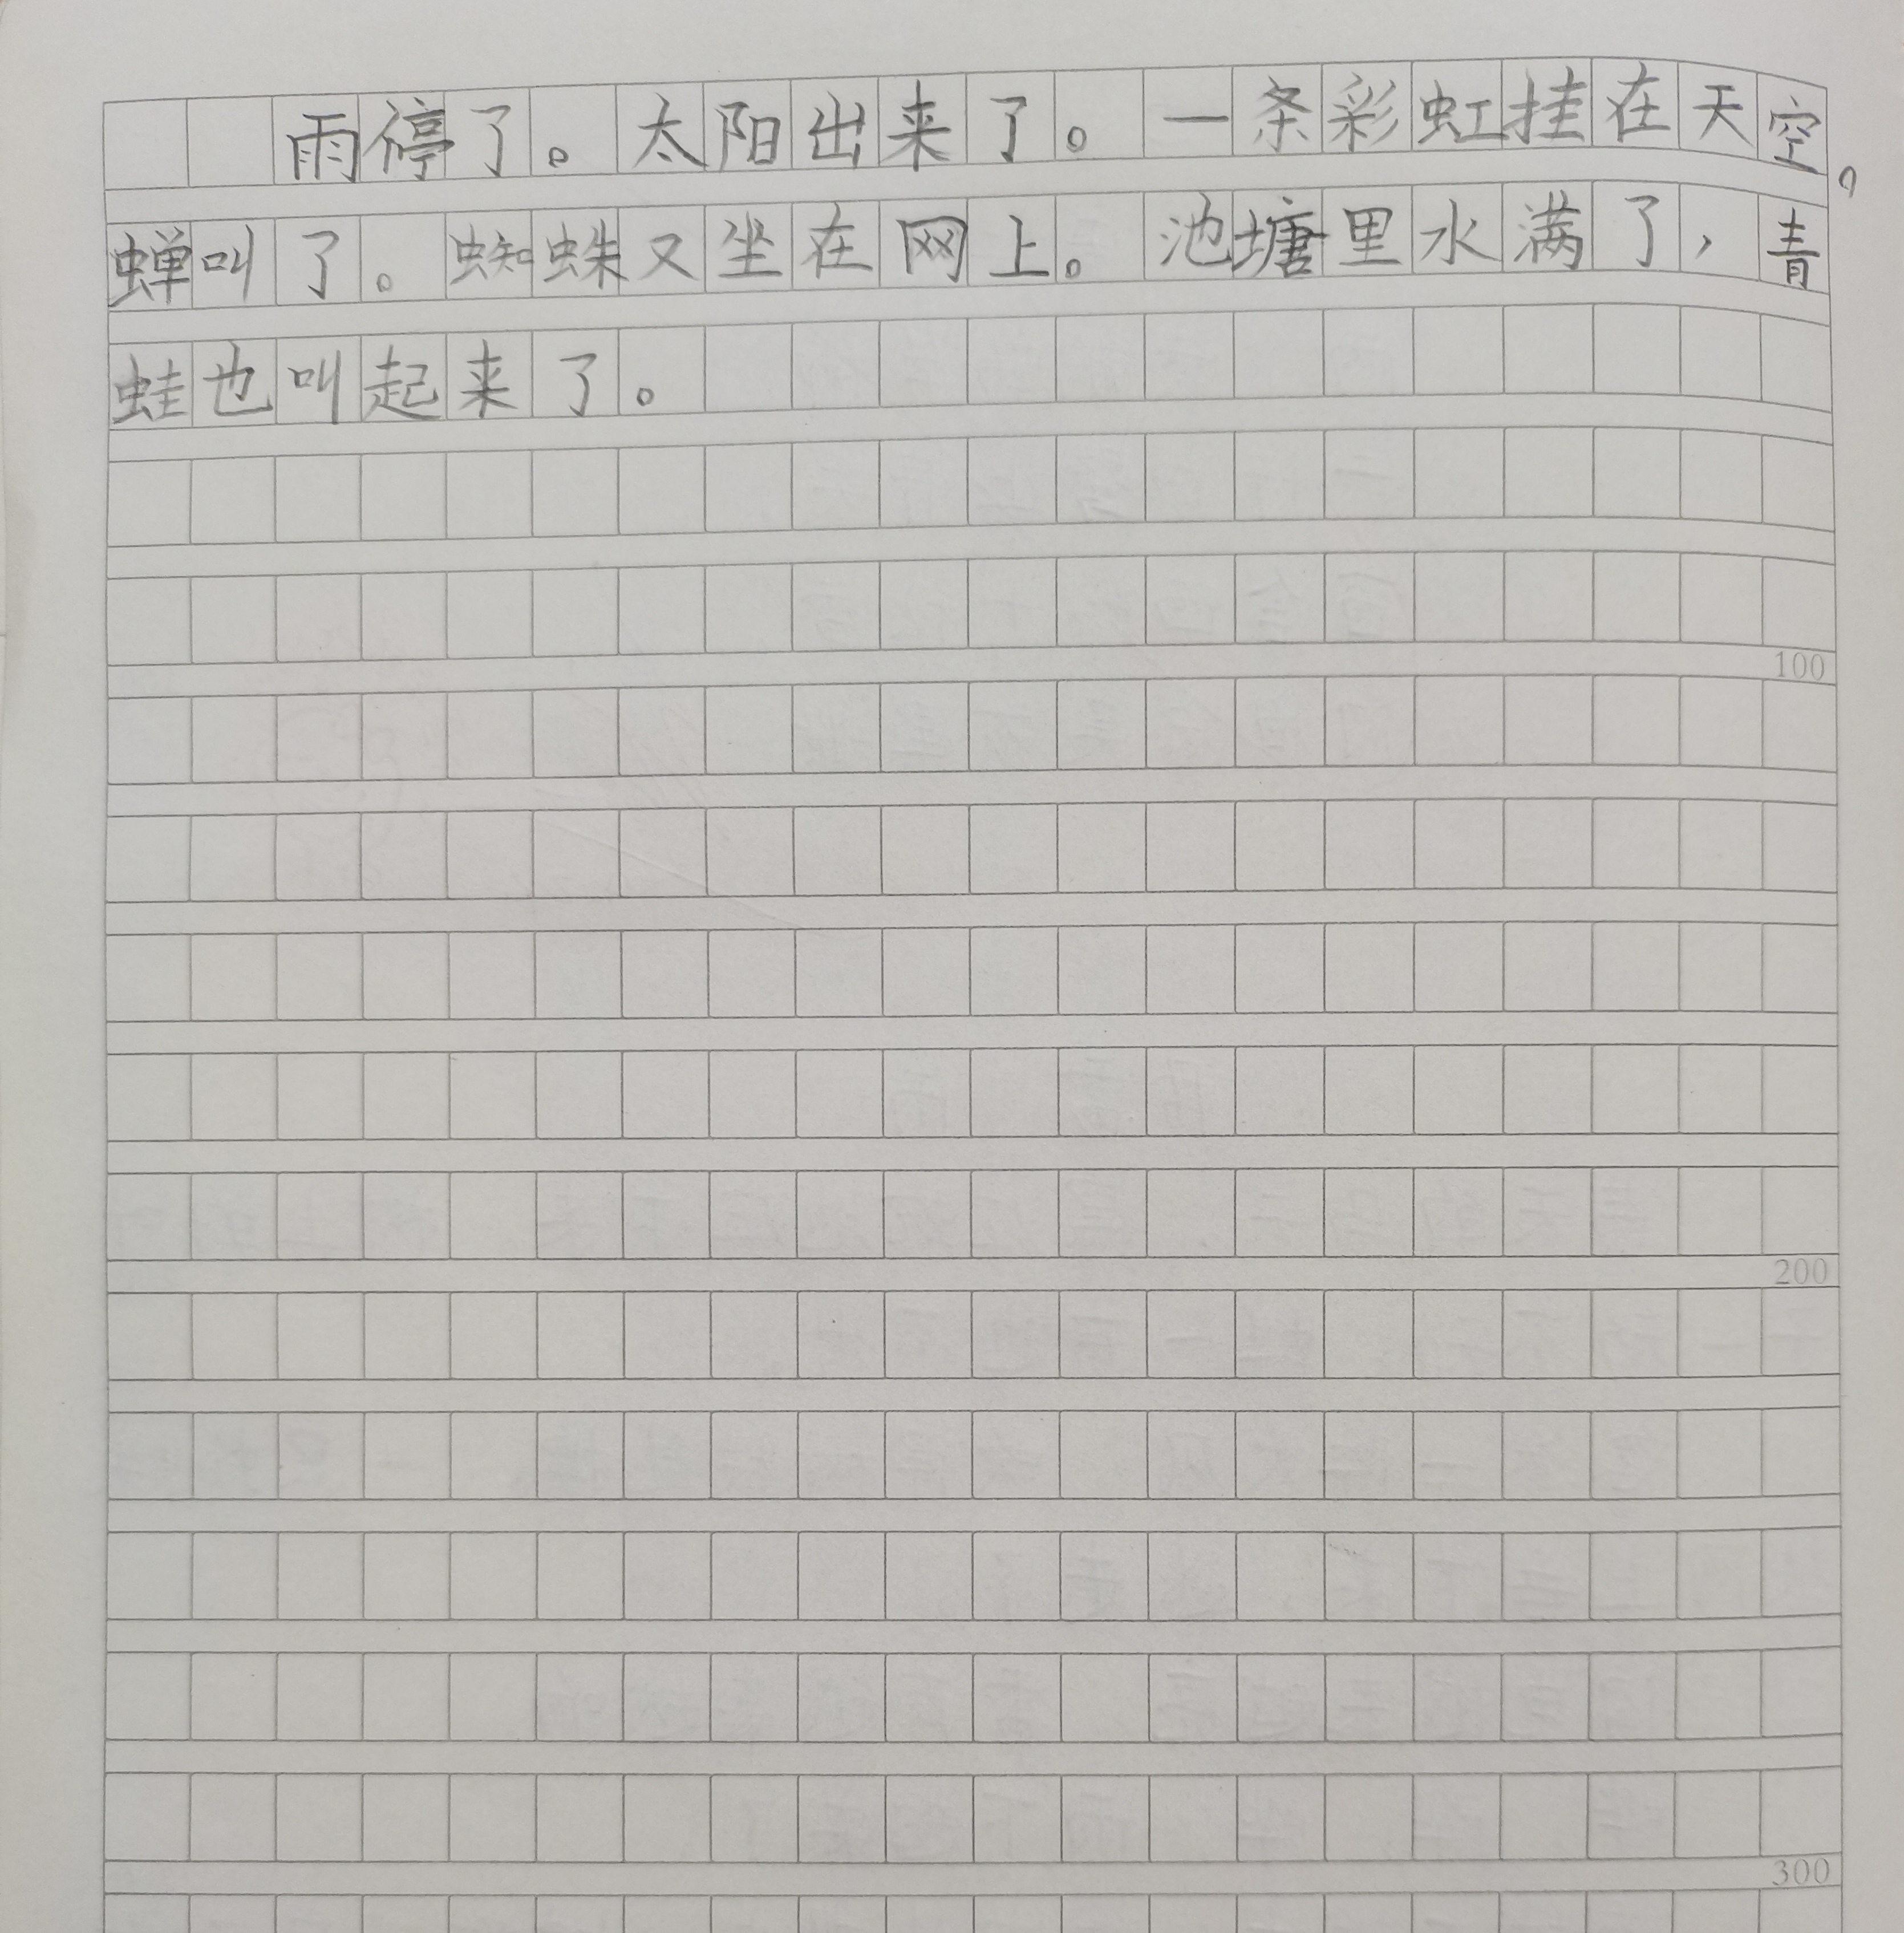 雨停了。太阳出来了。一条彩虹挂在天空。
蝉叫了。蜘蛛又坐在网上。池塘里水满了，青
蛙也叫起来了。
100
200
300